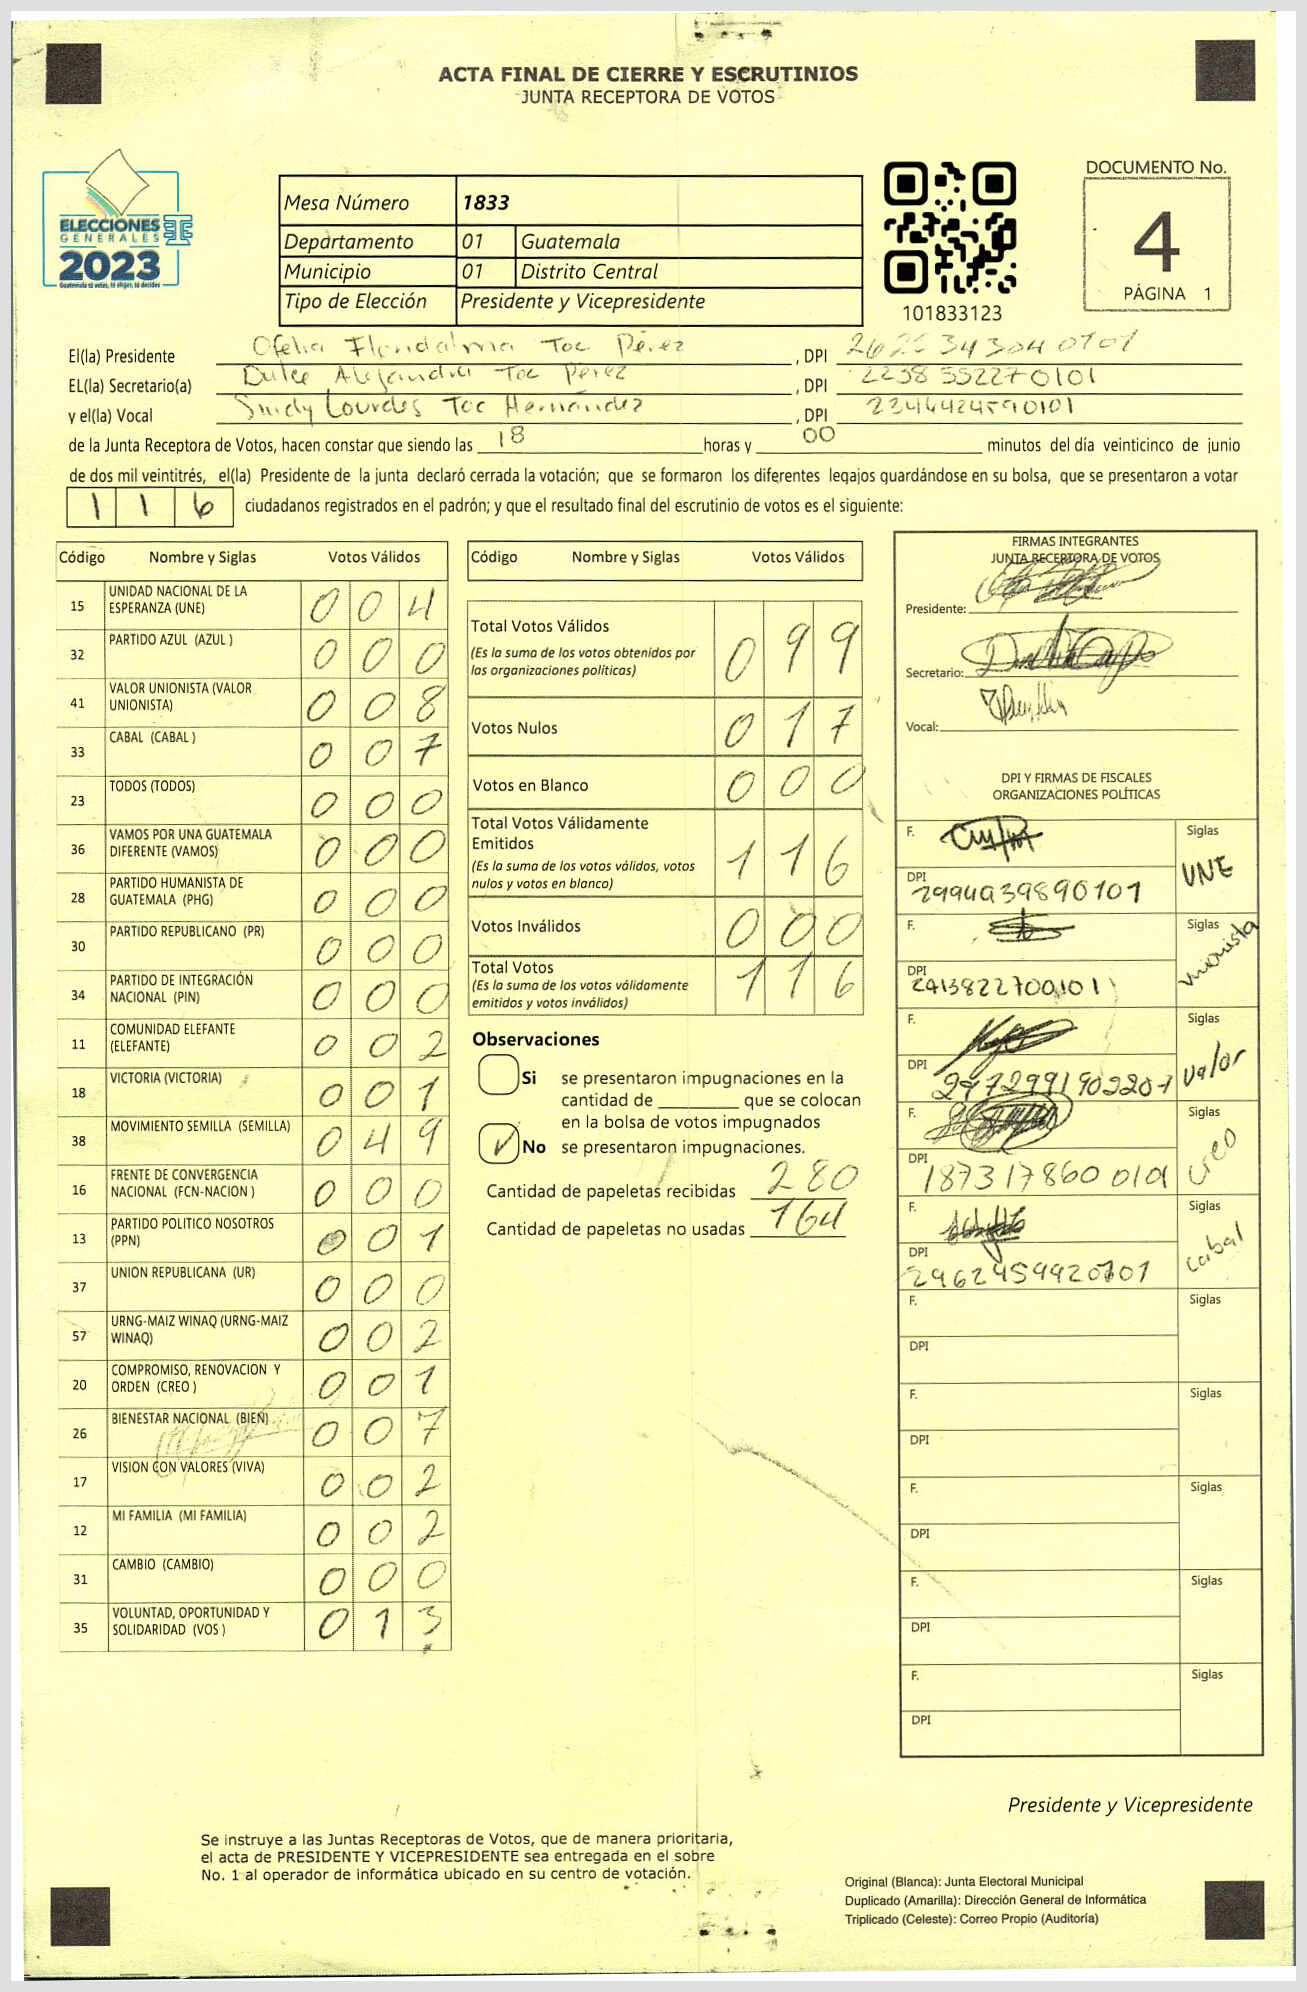 ACTA FINAL DE CIERRE Y ESCRUTINIOS
JUNTA RECEPTORA DE VOTOS
ELECCIONES
GENERALES
2023
Guatemala tú votas, tú eliges, tú decides
Mesa Número 1833
Departamento 01 Guatemala
Municipio 01 Distrito Central
Tipo de Elección Presidente y Vicepresidente
101833123
DOCUMENTO No.
4
PÁGINA 1
El(la) Presidente Ofelia Floridalma Toc Pérez , DPI
EL(la) Secretario(a) Dulce Alejandra Toc Pérez , DPI 2258 552270101
y el(la) Vocal Sindy Lourdes Toc Hernández , DPI 2344424590101
de la Junta Receptora de Votos, hacen constar que siendo las 18 horas y 00 minutos del día veinticinco de junio
de dos mil veintitrés, el(la) Presidente de la junta declaró cerrada la votación; que se formaron los diferentes legajos guardándose en su bolsa, que se presentaron a votar
1 1 6 ciudadanos registrados en el padrón; y que el resultado final del escrutinio de votos es el siguiente:
Código Nombre y Siglas Votos Válidos
15 UNIDAD NACIONAL DE LA ESPERANZA (UNE) 0 0 4
32 PARTIDO AZUL (AZUL ) 0 0 0
41 VALOR UNIONISTA (VALOR UNIONISTA) 0 0 8
33 CABAL (CABAL ) 0 0 7
23 TODOS (TODOS) 0 0 0
36 VAMOS POR UNA GUATEMALA DIFERENTE (VAMOS) 0 0 0
28 PARTIDO HUMANISTA DE GUATEMALA (PHG) 0 0 0
30 PARTIDO REPUBLICANO (PR) 0 0 0
34 PARTIDO DE INTEGRACIÓN NACIONAL (PIN) 0 0 0
11 COMUNIDAD ELEFANTE (ELEFANTE) 0 0 2
18 VICTORIA (VICTORIA) 0 0 1
38 MOVIMIENTO SEMILLA (SEMILLA) 0 4 9
16 FRENTE DE CONVERGENCIA NACIONAL (FCN-NACION ) 0 0 0
13 PARTIDO POLITICO NOSOTROS (PPN) 0 0 1
37 UNION REPUBLICANA (UR) 0 0 0
57 URNG-MAIZ WINAQ (URNG-MAIZ WINAQ) 0 0 2
20 COMPROMISO, RENOVACION Y ORDEN (CREO ) 0 0 1
26 BIENESTAR NACIONAL (BIEN) 0 0 7
17 VISION CON VALORES (VIVA) 0 0 2
12 MI FAMILIA (MI FAMILIA) 0 0 2
31 CAMBIO (CAMBIO) 0 0 0
35 VOLUNTAD, OPORTUNIDAD Y SOLIDARIDAD (VOS ) 0 1 3
Código Nombre y Siglas Votos Válidos
Total Votos Válidos 0 9 9
(Es la suma de los votos obtenidos por
las organizaciones políticas)
Votos Nulos 0 1 7
Votos en Blanco 0 0 0
Total Votos Válidamente
Emitidos 1 1 6
(Es la suma de los votos válidos, votos
nulos y votos en blanco)
Votos Inválidos 0 0 0
Total Votos 1 1 6
(Es la suma de los votos válidamente
emitidos y votos inválidos)
Observaciones
Si se presentaron impugnaciones en la
cantidad de ________ que se colocan
en la bolsa de votos impugnados
✓ No se presentaron impugnaciones.
Cantidad de papeletas recibidas 280
Cantidad de papeletas no usadas 164
FIRMAS INTEGRANTES
JUNTA RECEPTORA DE VOTOS
Presidente:
Secretario:
Vocal:
DPI Y FIRMAS DE FISCALES
ORGANIZACIONES POLÍTICAS
F. Siglas UNE
DPI 2994939890101
F. Siglas unionista
DPI 2413822700101
F. Siglas Valor
DPI
F. Siglas creo
DPI 187317860 0101
F. Siglas cabal
DPI 2962459920101
F. Siglas
DPI
F. Siglas
DPI
F. Siglas
DPI
F. Siglas
DPI
F. Siglas
DPI
Presidente y Vicepresidente
Se instruye a las Juntas Receptoras de Votos, que de manera prioritaria,
el acta de PRESIDENTE Y VICEPRESIDENTE sea entregada en el sobre
No. 1 al operador de informática ubicado en su centro de votación.
Original (Blanca): Junta Electoral Municipal
Duplicado (Amarilla): Dirección General de Informática
Triplicado (Celeste): Correo Propio (Auditoría)